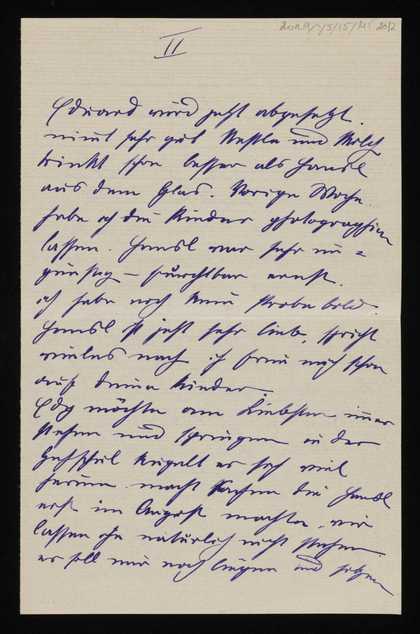 II
Eduard wird jetzt abgesetzt.
nimmt sehr gut Nestle und Milch
trinkt schon besser als Hansl
aus dem Glas. Vorige Woche
habe ich die Kinder photographieren
lassen. Hansl war sehr un=
günstig – furchtbar ernst.
ich habe noch kein Probebild.
Hansl ist jetzt sehr lieb, spricht
vieles nach. ich freue mich schon
auf deine Kinder
Edy möchte am Liebsten immer
stehen und springen in der
kugelt er sich viel
herum. macht Sachen die Hansl
erst im August machte. wir
lassen ihn natürlich nicht stehen.
er soll nur noch liegen und sitzen